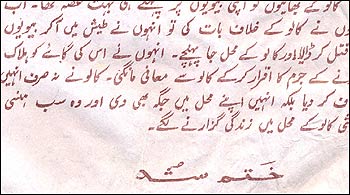 کالو کے بھائیوں کو اپنی بیویوں پر پہلے ہی بہت غصہ تھا۔ اب
ں نے کالو کے خلاف بات کی تو انہوں نے طیش میں آکر بیویوں
قتل کر ڈالا اور کالو کے محل جا پہنچے۔ انہوں نے اس کی گائے کو ہلاک
نے کے جرم کا اقرار کر کے کالو سے معافی مانگی۔ کالو نے نہ صرف انہیں
ف کر دیا بلکہ انہیں اپنے محل میں جگہ بھی دی اور وہ سب ہنسی
شی کالو کے محل میں زندگی گزارنے لگے۔
ختم شد